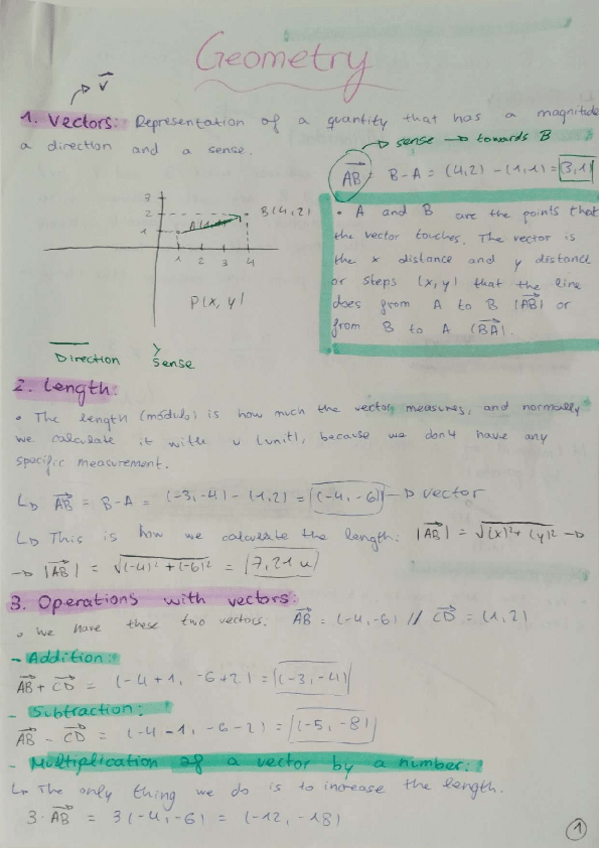 Geometry
v
1. Vectors: Representation of a quantity that has a magnitude
a direction and a sense.
sense → towards B
AB = B-A = (4,2) - (1,1) = (3,1)
3
2
1
1 2 3 4
A(1,1)
B(4,2)
P(x,y)
Direction
Sense
• A and B are the points that
the vector touches. The vector is
the x distance and y distance
or steps (x,y) that the line
does from A to B (AB) or
from B to A (BA).
2. Length:
• The length (módulo) is how much the vector measures, and normally
we calculate it with u (unit), because we don't have any
specific measurement.
AB = B-A = (-3,-4) - (1,2) = (-4,-6) → vector
This is how we calculate the length: |AB| = √(x)²+(y)² →
→ |AB| = √(-4)²+(-6)² = 7,21 u
3. Operations with vectors:
• We have these two vectors: AB = (-4,-6) // CD = (1,2)
- Addition:
AB + CD = (-4+1, -6+2) = (-3,-4)
- Subtraction:
AB - CD = (-4-1, -6-2) = (-5,-8)
- Multiplication of a vector by a number:
The only thing we do is to increase the length.
3·AB = 3(-4,-6) = (-12,-18)
1